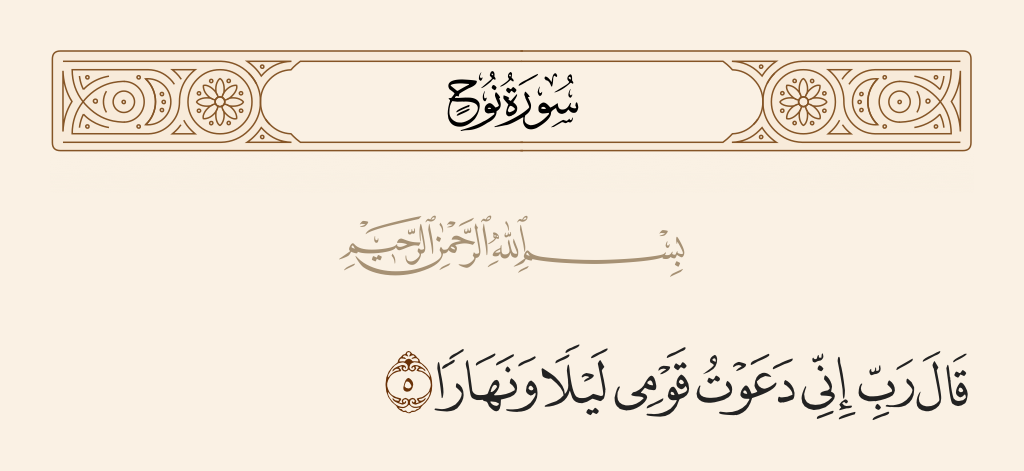 سُورَةُ نُوحٍ
بِسْمِ ٱللَّهِ ٱلرَّحْمَٰنِ ٱلرَّحِيمِ
قَالَ رَبِّ إِنِّى دَعَوْتُ قَوْمِى لَيْلًا وَنَهَارًا ٥